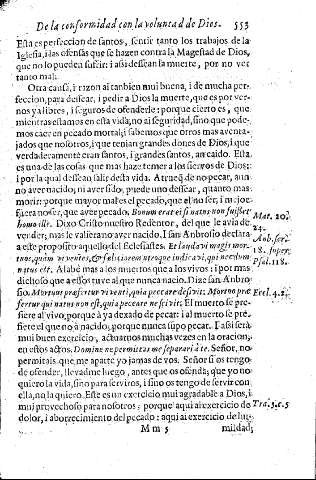 De la conformidad con la voluntad de Dios. 553
Esta es perfeccion de santos, sentir tanto los trabajos de la
Iglesia, i las ofensas que se hazen contra la Magestad de Dios,
que no lo pueden sufrir: i assi dessean la muerte, por no ver
tanto mal.
Otra causa, i razon ai tambien mui buena, i de mucha per-
feccion, para dessear, i pedir a Dios la muerte, que es por ver-
nos ya libres, i seguros de ofenderle: porque cierto es, que
mientras estamos en esta vida, no ai seguridad, sino que pode-
mos caer en pecado mortal; i sabemos que otros mas aventa-
jados que nosotros, i que tenian grandes dones de Dios, i que
verdaderamente eran santos, i grandes santos, an caido. Esta
es una de las cosas que mas haze temer a los siervos de Dios;
i por la qual dessean salir desta vida. A trueq̃ de no pecar, aun
no aver nacido, ni aver sido, puede uno dessear, quanto mas
morir: porque mayor mal es el pecado, que el no ser, i mejor
fuera no ser, que aver pecado. Bonum erat ei si natus non fuisset Mat. 20.
homo ille. Dixo Christo nuestro Redentor, del que le avia de 24.
vender; mas le valiera no aver nacido. I san Ambrosio declara Anb. ser.
a este proposito aquello del Eclesiastes. Et laudavi magis mor- 18. super
tuos, quàm viventes, & fœliciorem utroque indicavi, qui necdum Psal. 118.
natus est. Alabè mas a los muertos que a los vivos: i por mas
dichoso que a essotros tuve al que nunca nacio. Dize san Anbro-
sio. Mortuus præfertur viventi, quia peccare desivit: Mortuo præ- Ecel. 4. 2.
fertur qui natus non est, quia peccare nescivit: El muerto se pre-
fiere al vivo; porque à ya dexado de pecar: i al muerto se pre-
fiere el que no à nacido; porque nunca supo pecar. I assi serà
mui buen exercicio, actuarnos muchas vezes en la oracion;
en estos actos. Domine ne permittas me separari à te. Señor, no
permitais que me aparte yo jamas de vos. Señor si os tengo
de ofender, llevadme luego, antes que os ofenda; que yo no
quiero la vida, sino para serviros, i si no os tengo de servir con
ella, no la quiero. Este es un exercicio mui agradable a Dios, i
mui provechoso para nosotros: porque aqui ai exercicio de Tra. 5. c. 5
dolor, i aborrecimiento del pecado: aqui ai exercicio de hu-
M m 5 mildad;